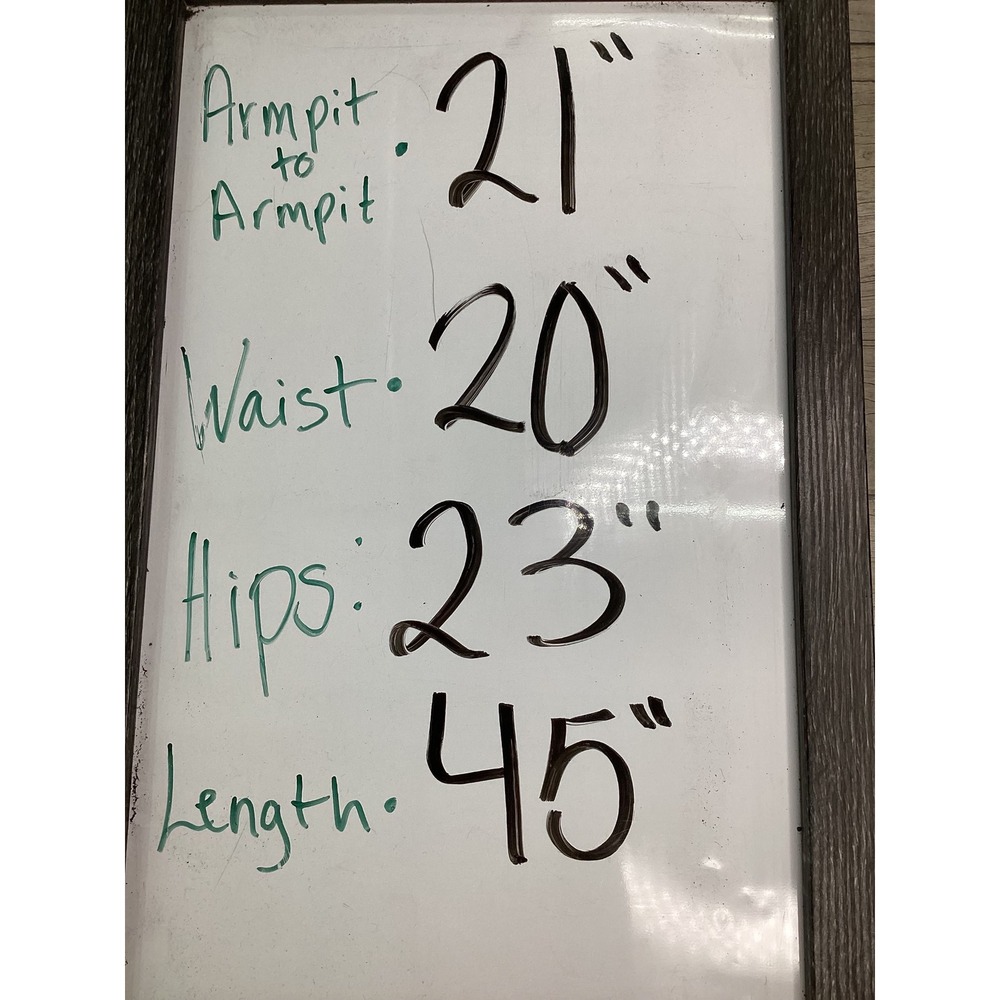 Armpit
to
Armpit
. 21"
Waist. 20"
Hips: 23"
Length. 45"